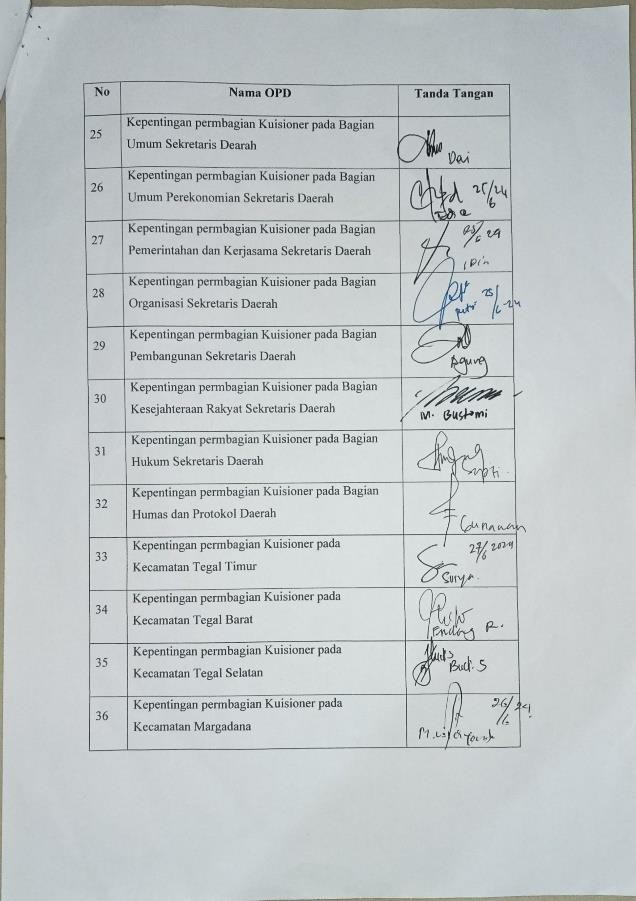 No Nama OPD Tanda Tangan
25 Kepentingan permbagian Kuisioner pada Bagian
Umum Sekretaris Dearah
Dai
26 Kepentingan permbagian Kuisioner pada Bagian
Umum Perekonomian Sekretaris Daerah
25/24
6
27 Kepentingan permbagian Kuisioner pada Bagian
Pemerintahan dan Kerjasama Sekretaris Daerah
28 Kepentingan permbagian Kuisioner pada Bagian
Organisasi Sekretaris Daerah
Putri 25/6-24
29 Kepentingan permbagian Kuisioner pada Bagian
Pembangunan Sekretaris Daerah
Agung
30 Kepentingan permbagian Kuisioner pada Bagian
Kesejahteraan Rakyat Sekretaris Daerah
M. Bustomi
31 Kepentingan permbagian Kuisioner pada Bagian
Hukum Sekretaris Daerah
Septi
32 Kepentingan permbagian Kuisioner pada Bagian
Humas dan Protokol Daerah
Gunawan
33 Kepentingan permbagian Kuisioner pada
Kecamatan Tegal Timur
27/6 2024
Surya.
34 Kepentingan permbagian Kuisioner pada
Kecamatan Tegal Barat
Endang R.
35 Kepentingan permbagian Kuisioner pada
Kecamatan Tegal Selatan
Budi. S
36 Kepentingan permbagian Kuisioner pada
Kecamatan Margadana
26/6 24